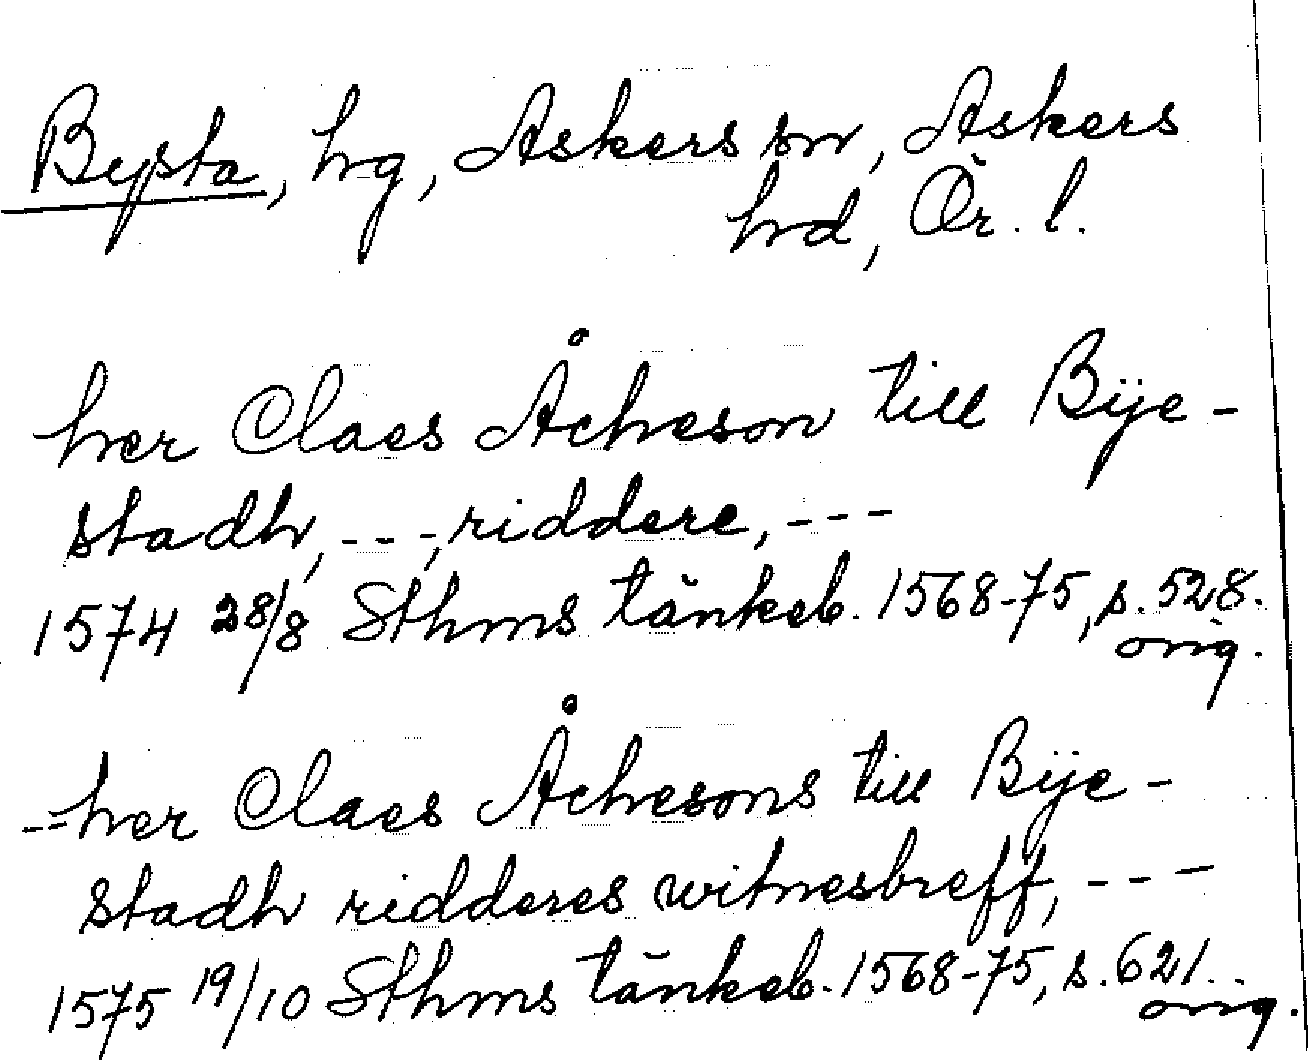 Bysta, hg, Askers sn, Askers
hd, Ör. l.
her Claes Åcheson till Bÿe-
stadh, ---, riddere, ---
1574 28/8 Sthms tänkeb. 1568-75, s. 528.
orig.
--her Claes Åchesons till Bÿe-
stadh ridderes witnesbreff, ---
1575 19/10 Sthms tänkeb. 1568-75, s. 621.
orig.